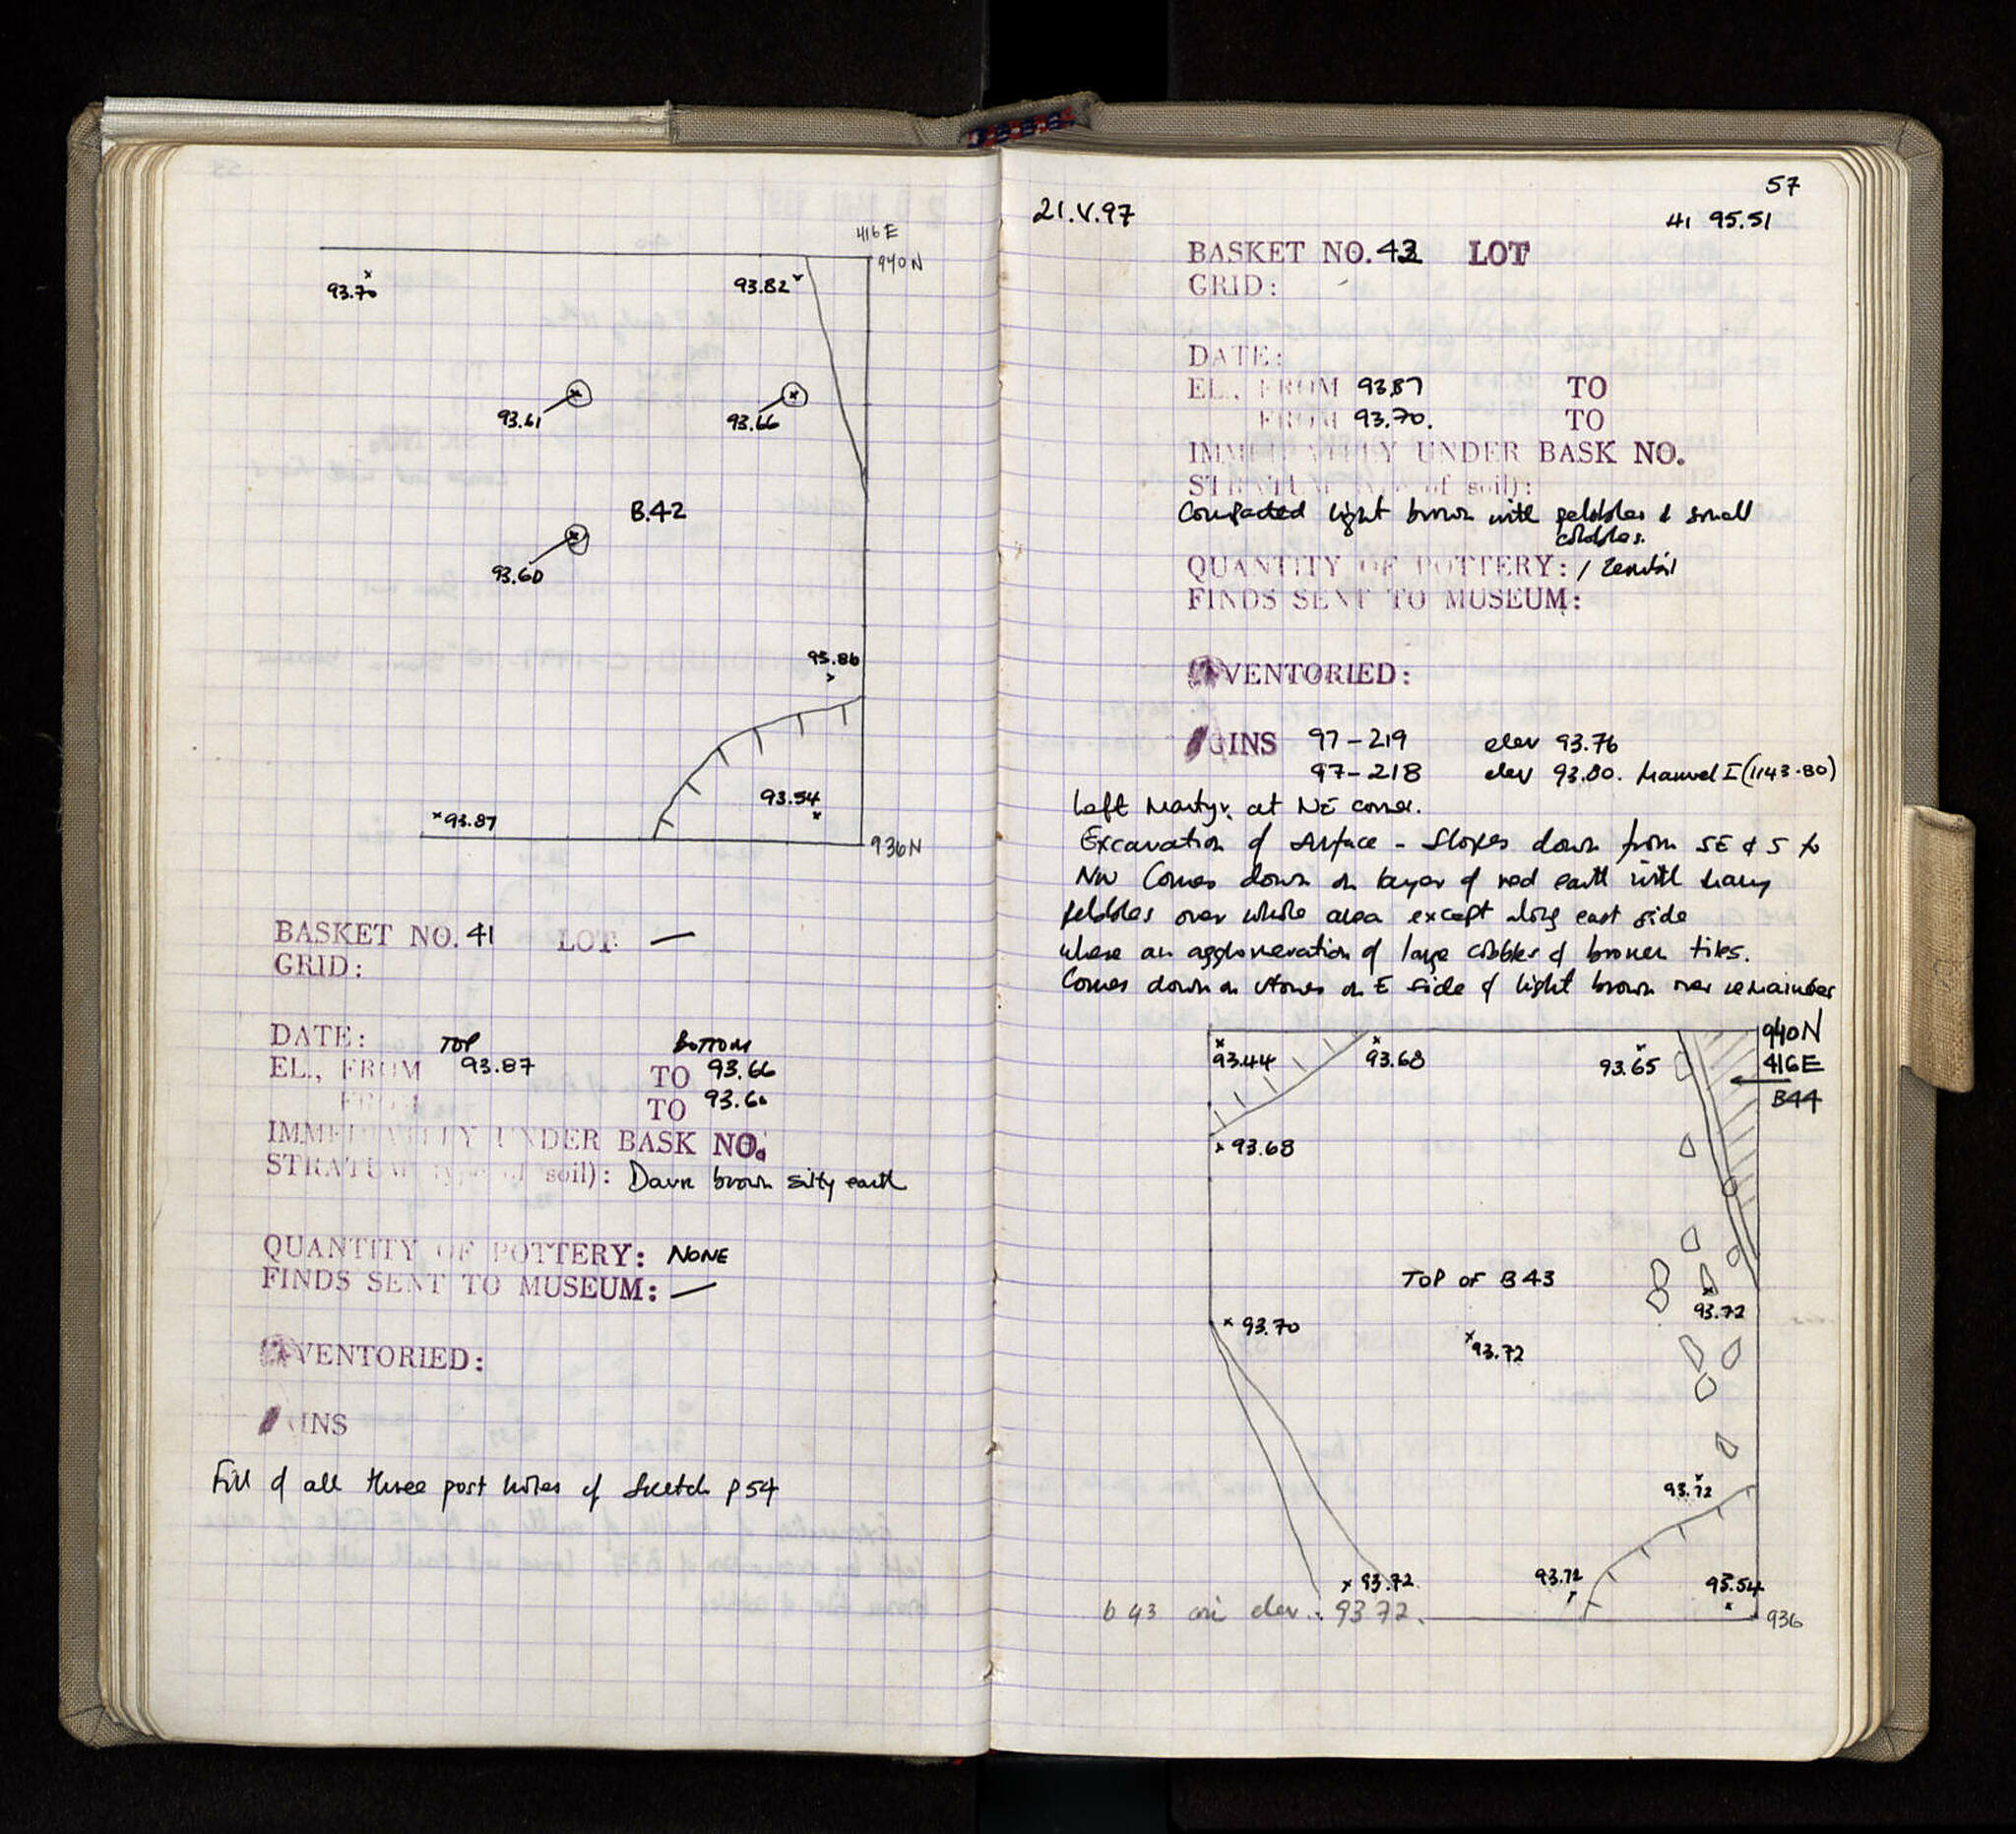 416 E
940N
93.70
93.82
93.61
93.66
B.42
93.60
93.86
93.54
93.87
936N
BASKET NO. 41 LOT —
GRID:
DATE:
TOP BOTTOM
EL., FROM 93.87 TO 93.66
FROM TO 93.60
IMMEDIATELY UNDER BASK NO.
STRATUM (type of soil): Dark brown silty earth
QUANTITY OF POTTERY: NONE
FINDS SENT TO MUSEUM: —
VENTORIED:
INS
Fill of all three post holes of Sketch p 54
57
21.V.97
41 95.51
BASKET NO. LOT
GRID:
DATE:
EL., FROM 93.87 TO
FROM 93.70. TO
IMMEDIATELY UNDER BASK NO.
STRATUM (type of soil):
Compacted light brown with pebbles & small
cobbles.
QUANTITY OF POTTERY: /
FINDS SENT TO MUSEUM:
VENTORIED:
INS 97-219 elev 93.76
97-218 elev 93.80. Manuel I (1143-80)
Left Martyr. at NE corner.
Excavation of surface - Slopes down from SE & S to
NW Comes down on layer of red earth with many
pebbles over whole area except along east side
where an agglomeration of large cobbles & broken tiles.
Comes down on stones on E side & light brown over remainder
940N
93.44
93.68
93.65
416E
B44
93.68
TOP OF B43
93.72
93.70
93.72
93.72
93.72
93.72
93.54
b 43 coin elev.: 93 72.
936